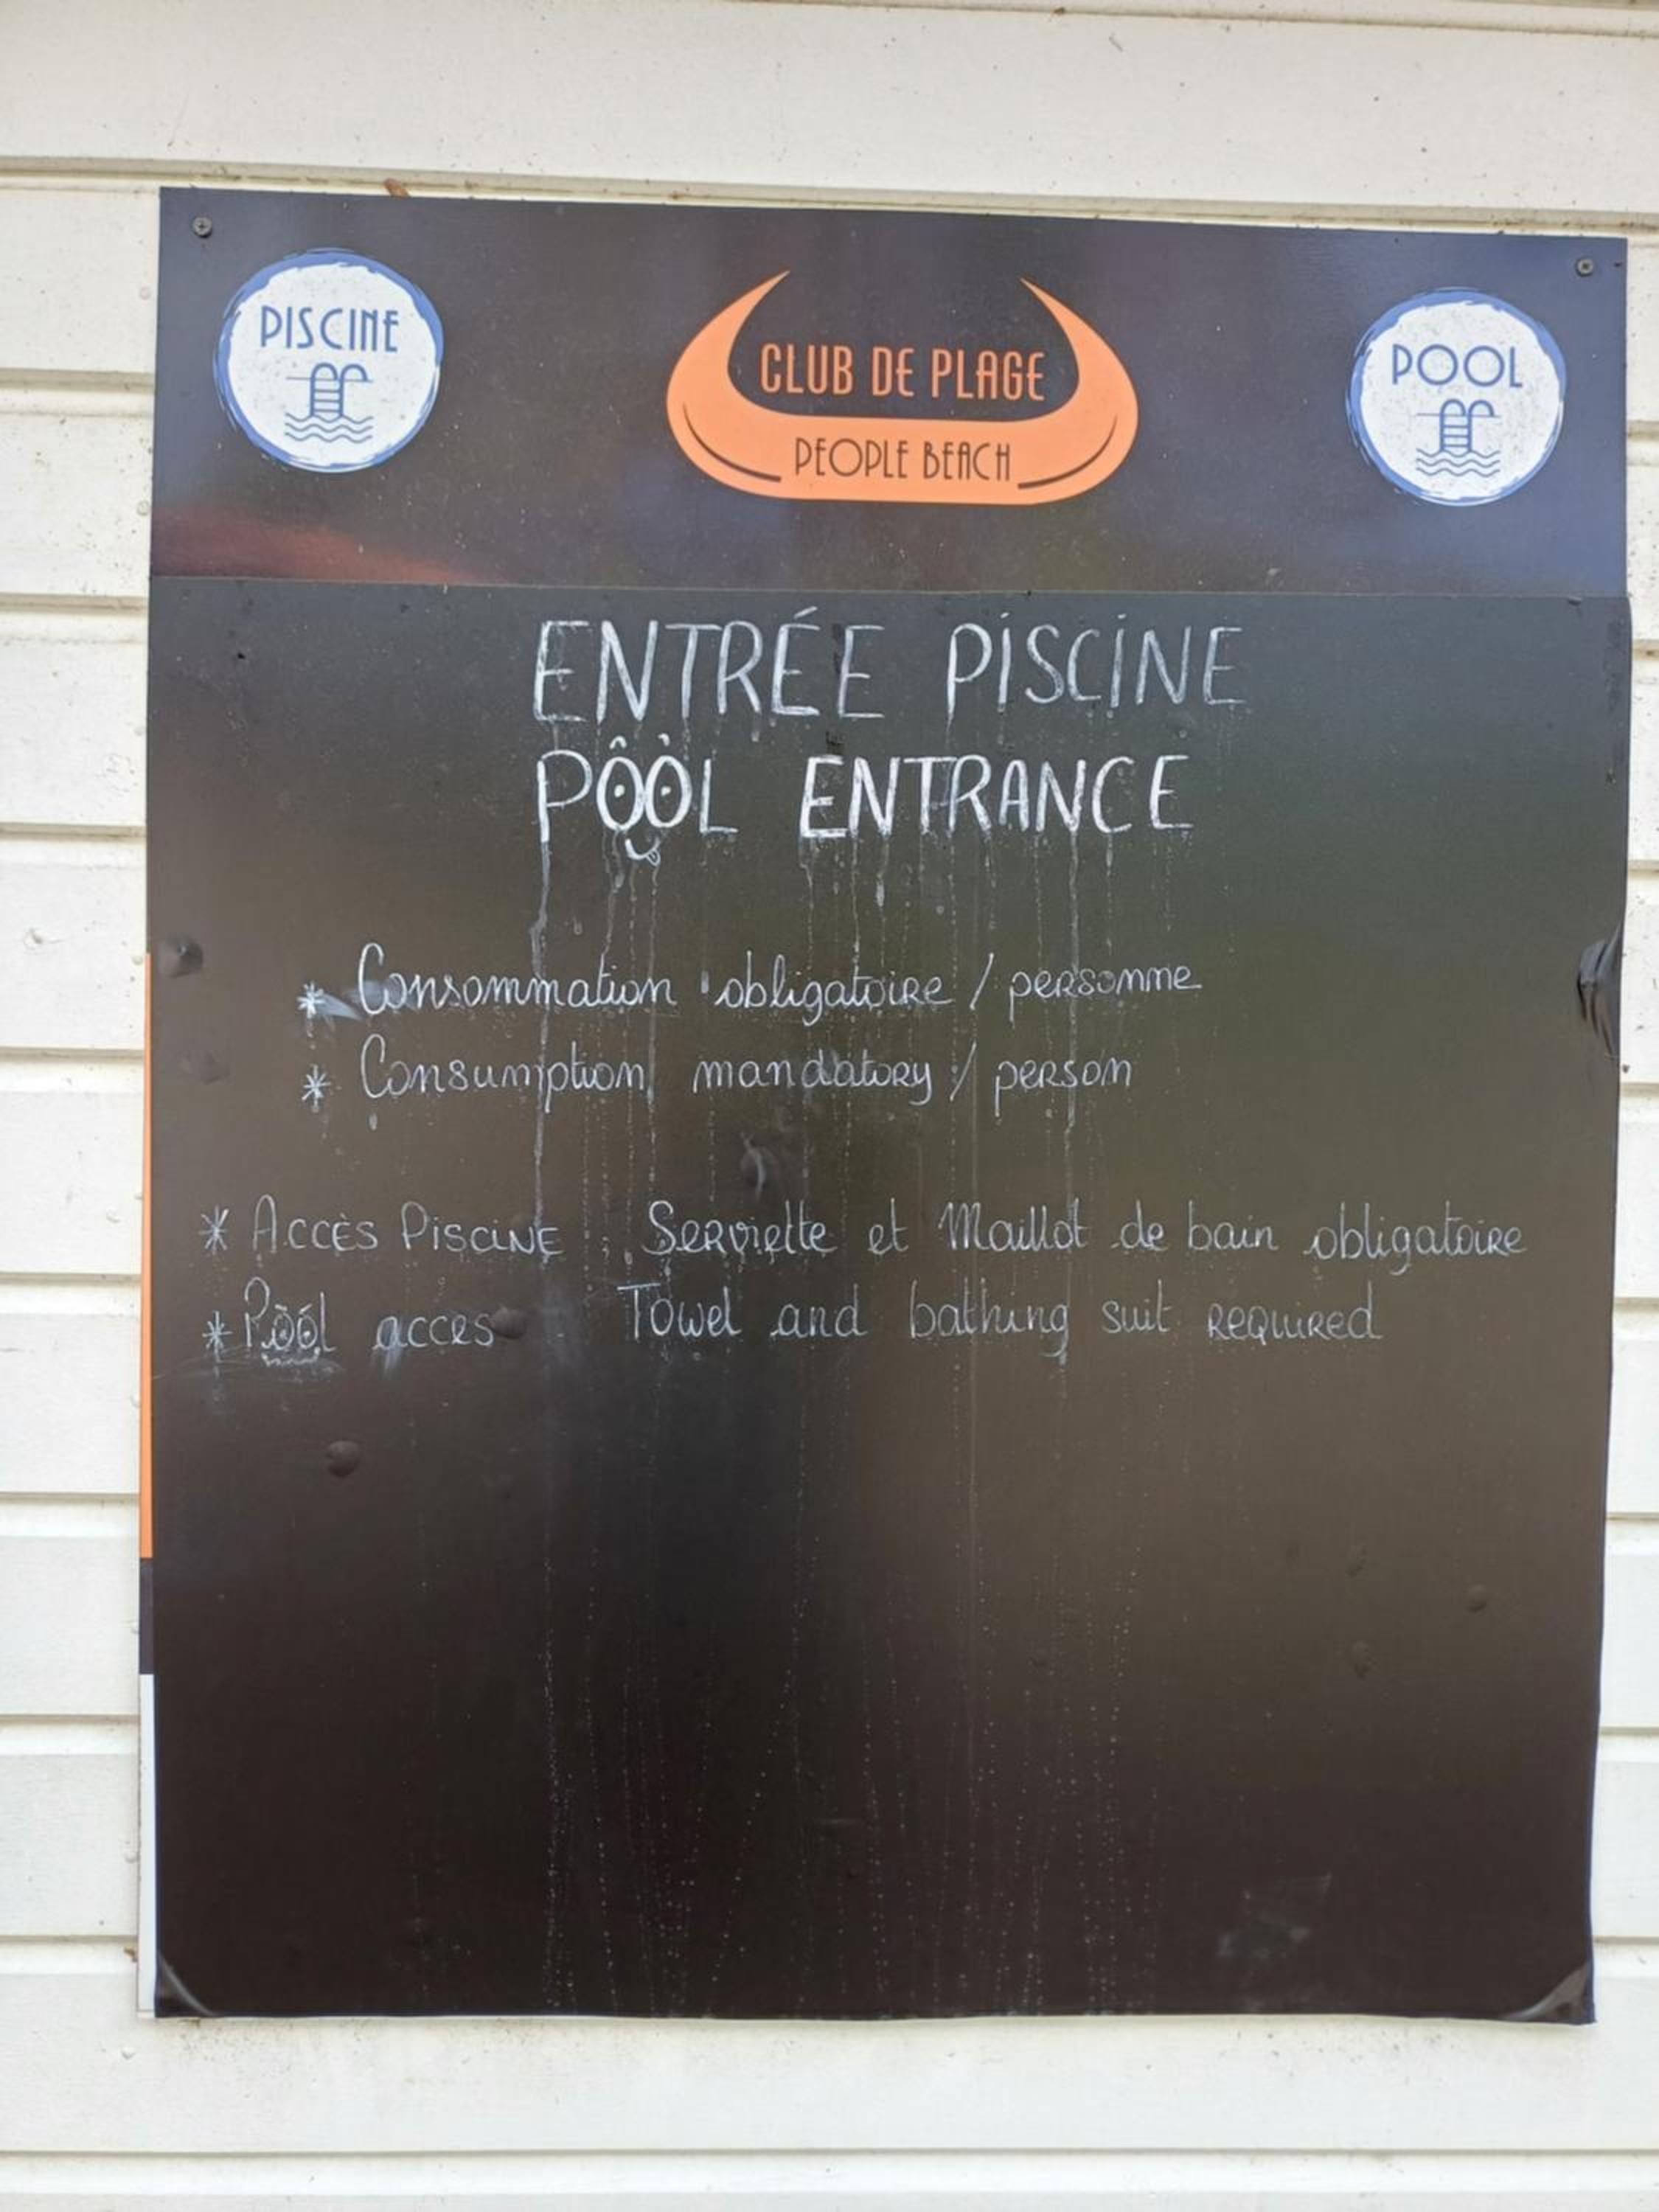 PISCINE
CLUB DE PLAGE
PEOPLE BEACH
POOL
ENTRÉE PISCINE
PÔÒL ENTRANCE
* Consommation obligatoire / personne
* Consumption mandatory / person
* ACCÈS PISCINE : Serviette et Maillot de bain obligatoire
* Pôól acces Towel and bathing suit required